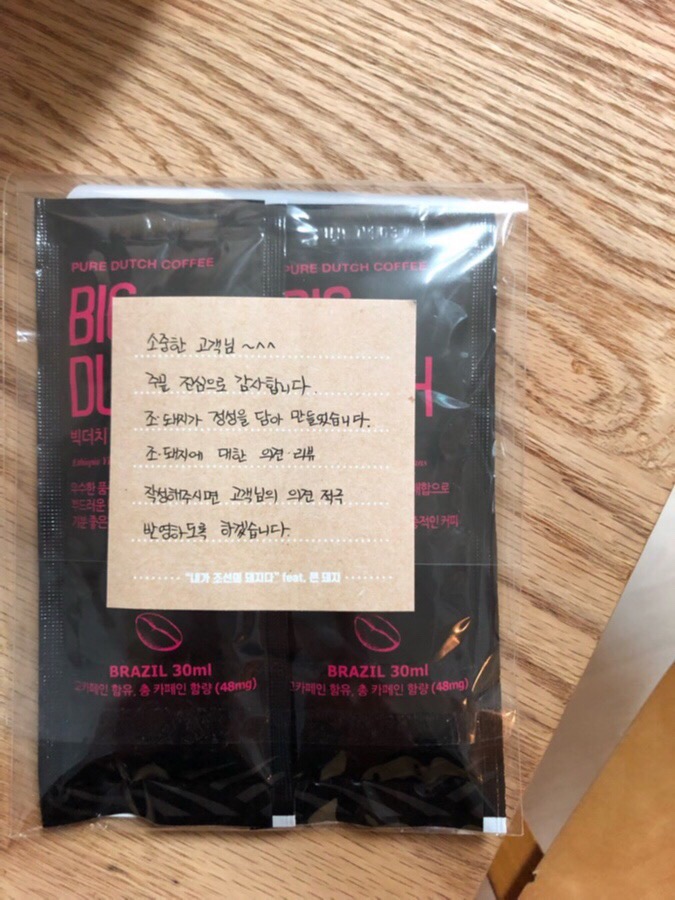 PURE DUTCH COFFEE
PURE DUTCH COFFEE
BIG
BIG
DU
H
빅더치
소중한 고객님 ~^^
주문 진심으로 감사합니다.
조.돼지가 정성을 담아 만들었습니다.
조.돼지에 대한 의견.리뷰
작성해주시면 고객님의 의견 적극
반영하도록 하겠습니다.
"내가 조선의 돼지다" feat. 큰 돼지
우수한
부드러운
기분 좋은
커피
BRAZIL 30ml
고카페인 함유, 총 카페인 함량 (48mg)
BRAZIL 30ml
고카페인 함유, 총 카페인 함량 (48mg)